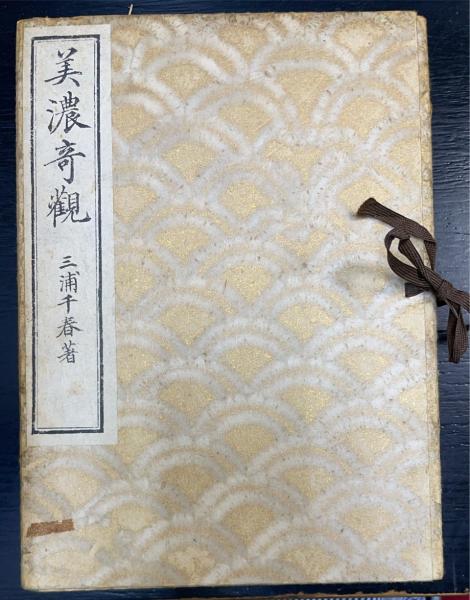 美濃奇觀
三浦千春著